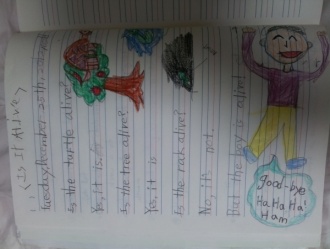 < Is It Alive >
Tuesday, December 25th,
Is the turtle alive?
Yes, it is.
Is the tree alive?
Yes, it is
Is the rak alive?
No, it's not.
But the boy is alive!
good-bye
Ha Ha Ha!
Ham